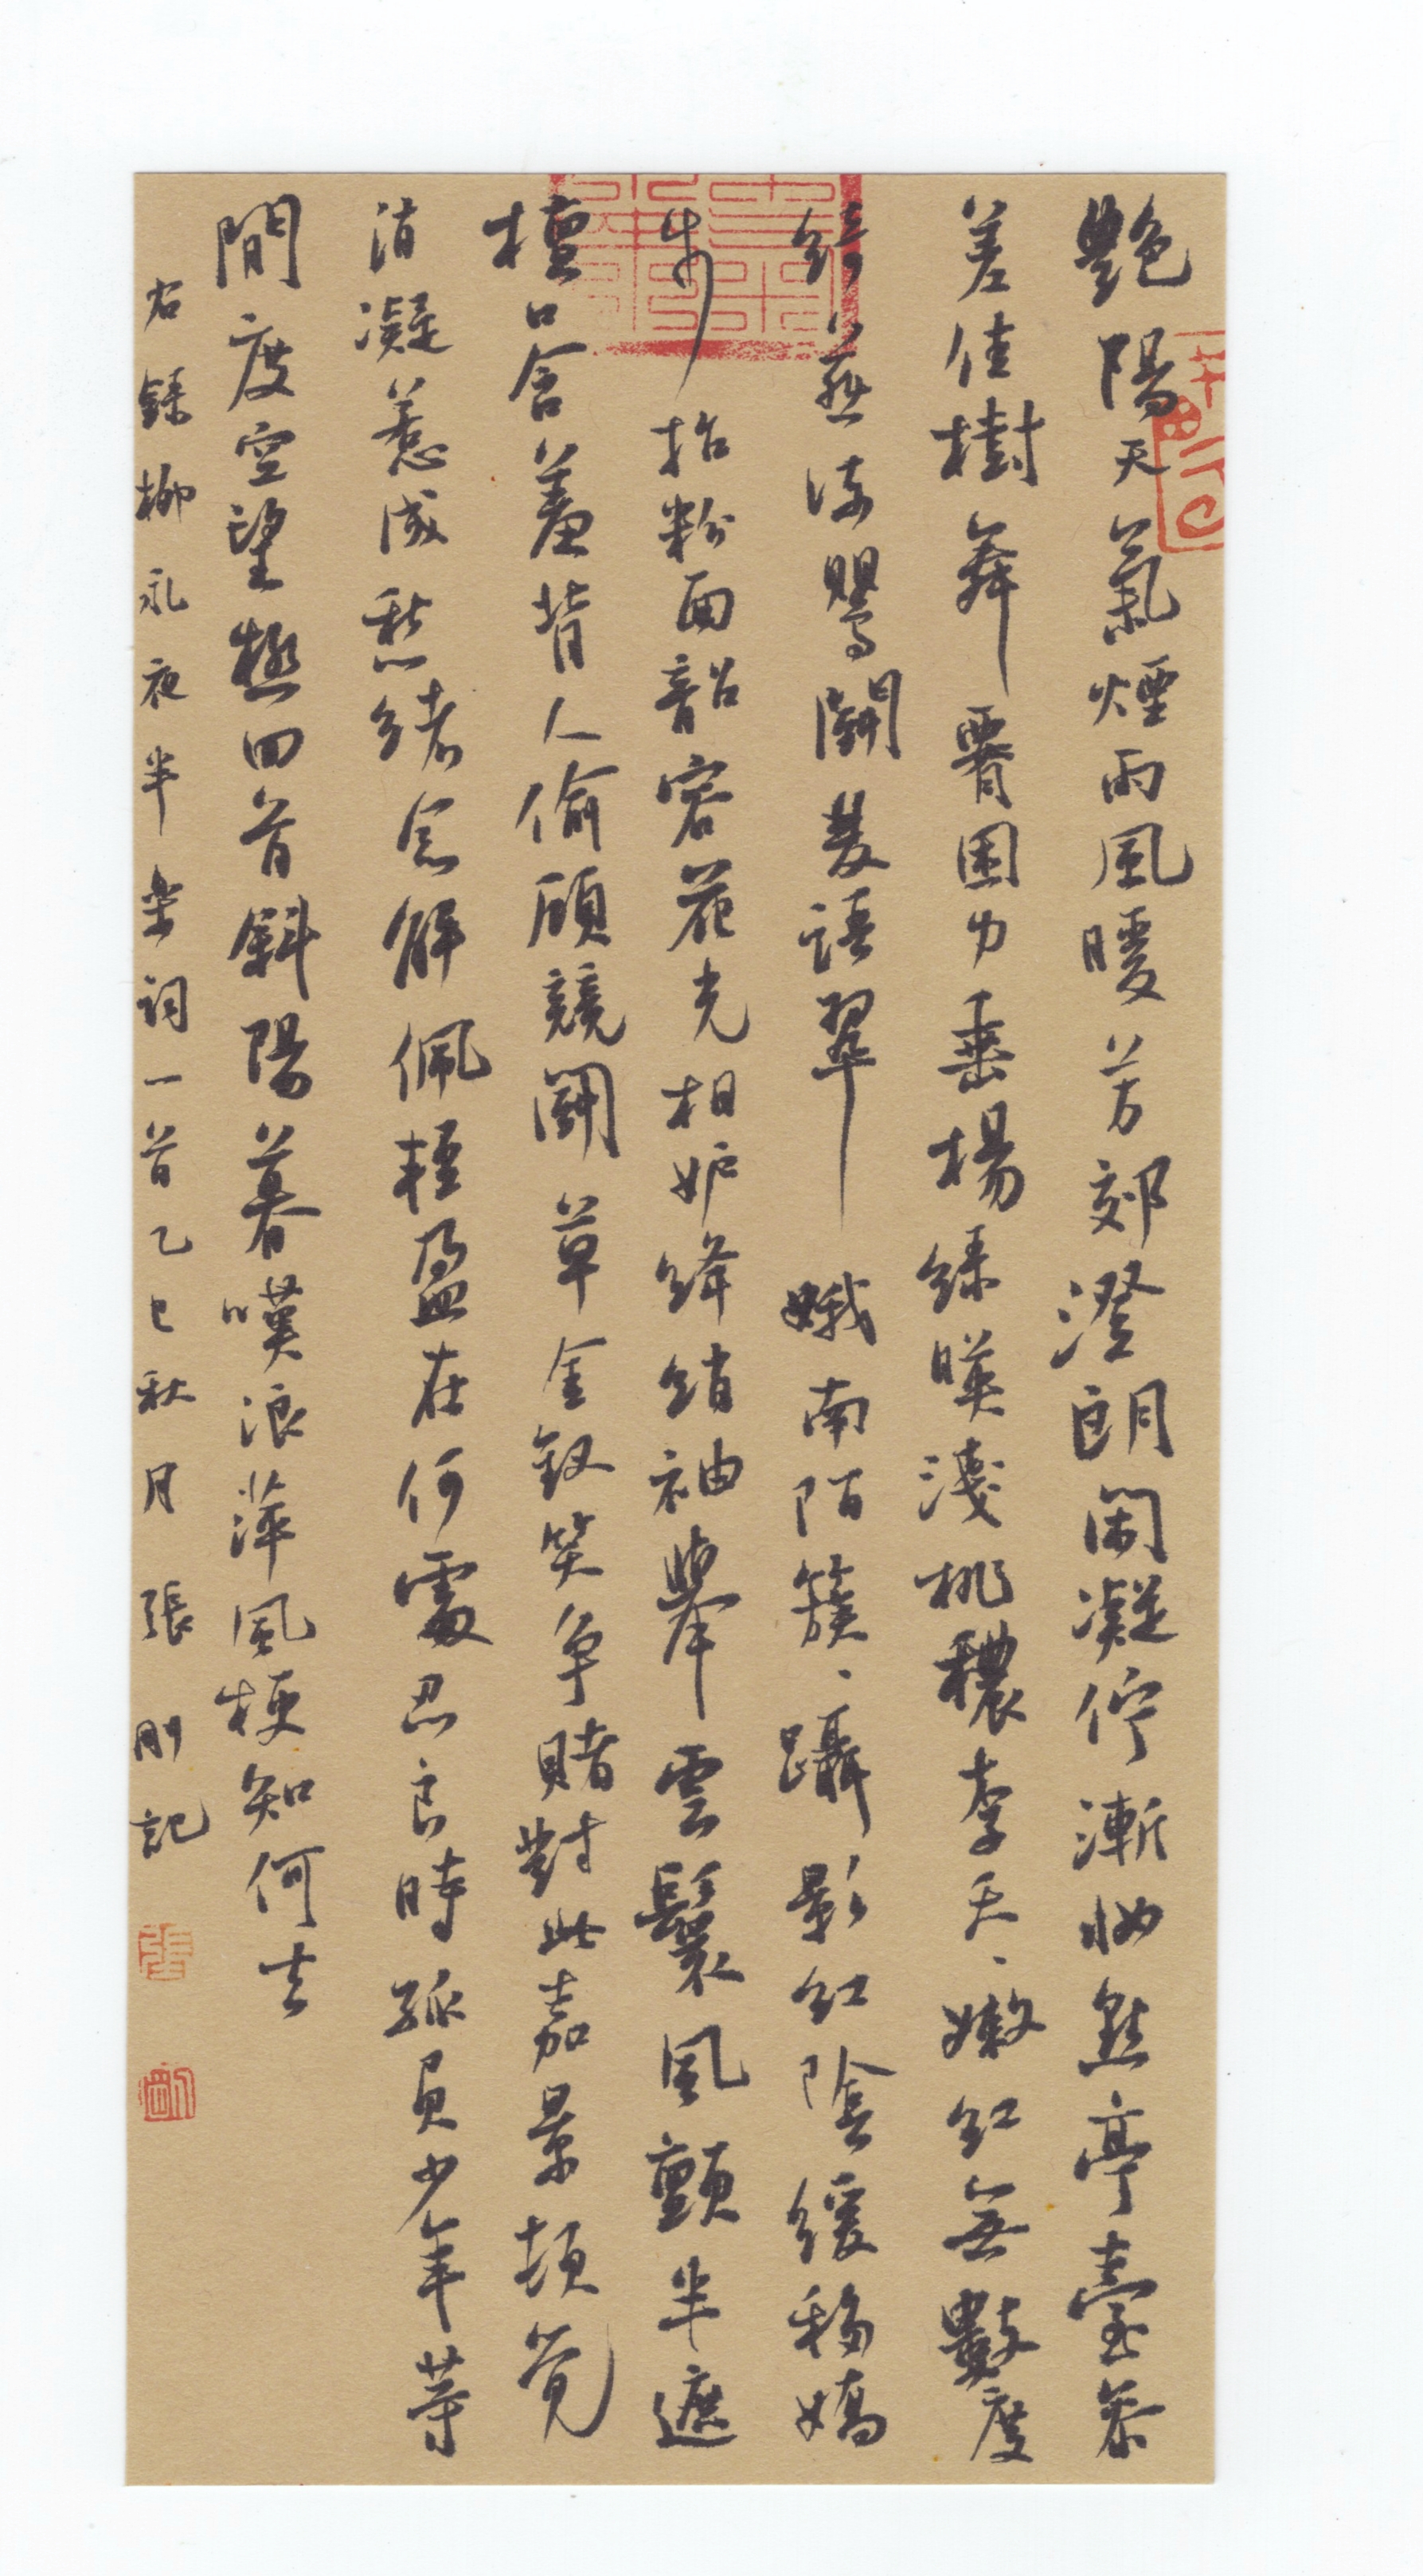 艶陽天氣煙雨風暖芳郊澄朗閑凝佇漸妝點亭臺參
差佳樹舞腰困力垂楊綠暎淺桃穠李夭、嫩紅無數度
綺燕流鶯鬭雙語翠娥南陌簇、躡影紅陰緩移嬌
步抬粉面韶容花光相妒絳綃袖舉雲鬟風顫半遮
檀口含羞背人偷顧競鬭草金釵笑爭賭對此嘉景頓覺
消凝惹成愁緒念解佩輕盈在何處忍良時孤負少年等
間度空望極回首斜陽暮嘆浪萍風梗知何去
右錄柳永夜半樂詞一首乙巳秋月張剛記